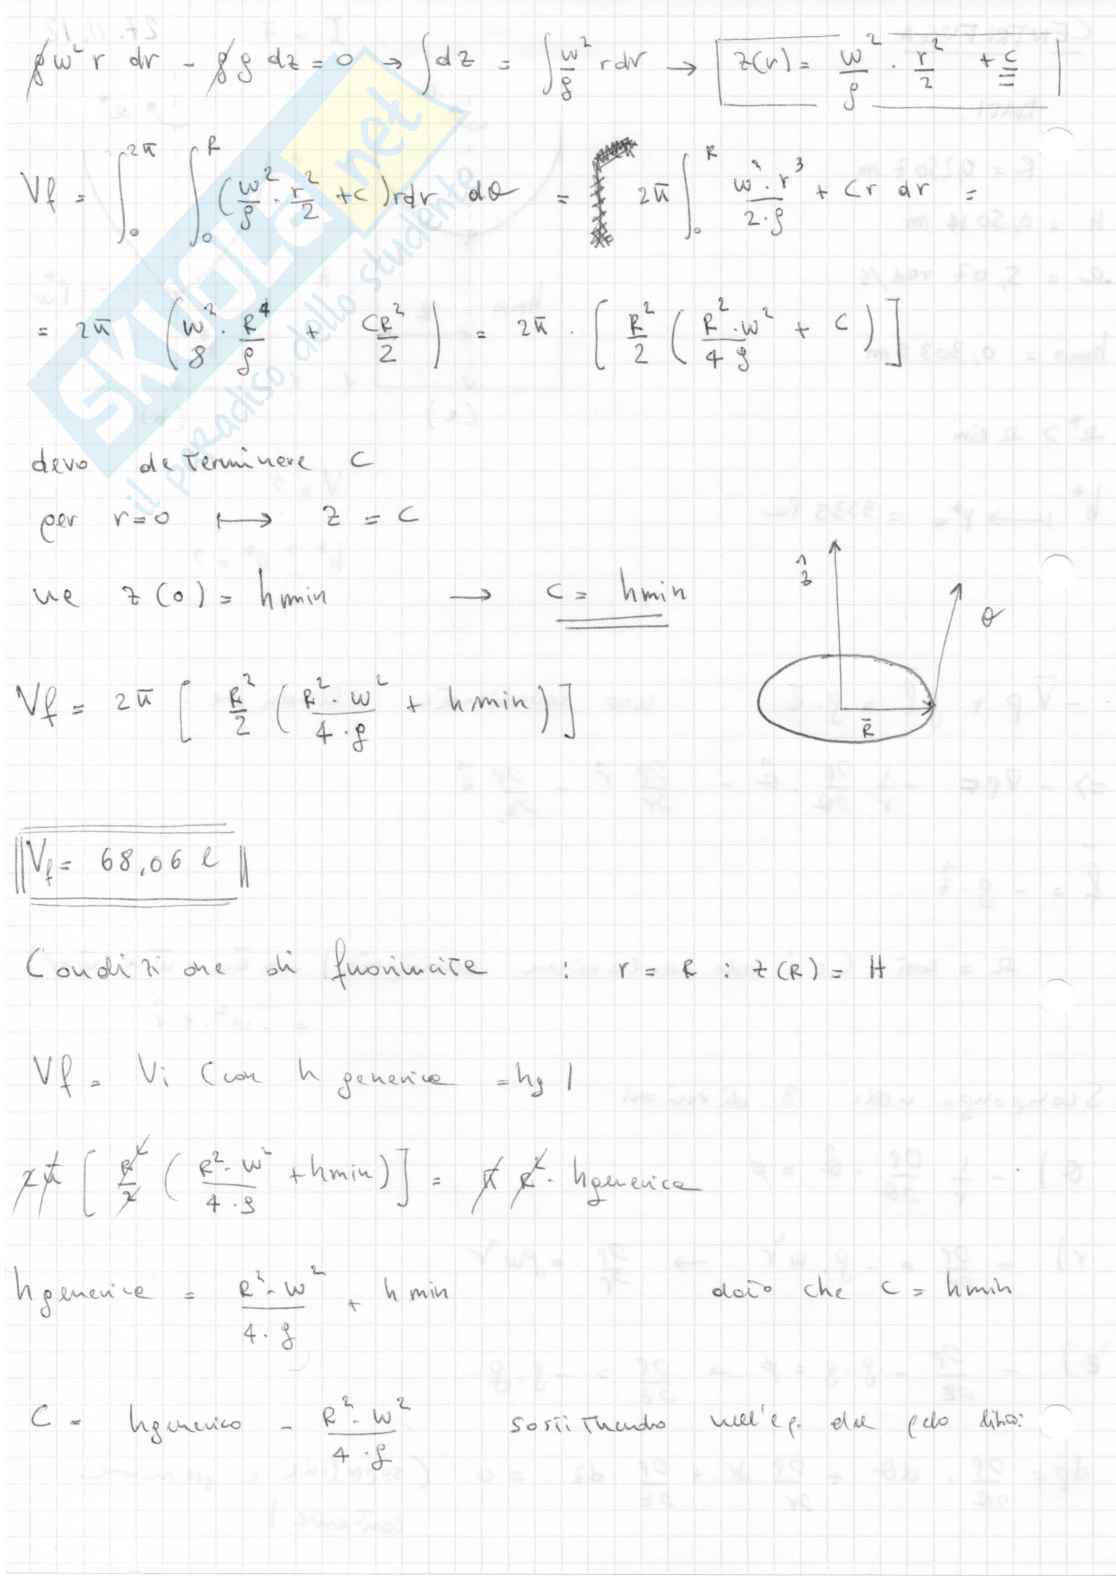 ρω² r dr - ρg dz = 0 → ∫dz = ∫ ω²/g r dr → z(r) = ω²/g · r²/2 + c
Vf = ∫₀^2π ∫₀^R (ω²/g · r²/2 + c) r dr dθ = 2π ∫₀^R ω²·r³/2·g + cr dr =
= 2π (ω²/8 · R⁴/g + CR²/2) = 2π · [R²/2 (R²·ω²/4g + C)]
devo determinare C
per r=0 ↦ z = C
ma z(0) = hmin → C = hmin
ẑ
θ
R̄
Vf = 2π [R²/2 (R²·ω²/4·g + hmin)]
Vf = 68,06 l
Condizione di fuoriuscita : r = R : z(R) = H
Vf = Vi (con h generica = hg)
2π [R²/2 (R²·ω²/4·g + hmin)] = π R² · hgenerica
hgenerica = R²·ω²/4·g + hmin dato che C = hmin
C = hgenerico - R²·ω²/4·g sostituendo nell'eq. del pelo libero:
SKUOLA.net
il paradiso dello studente